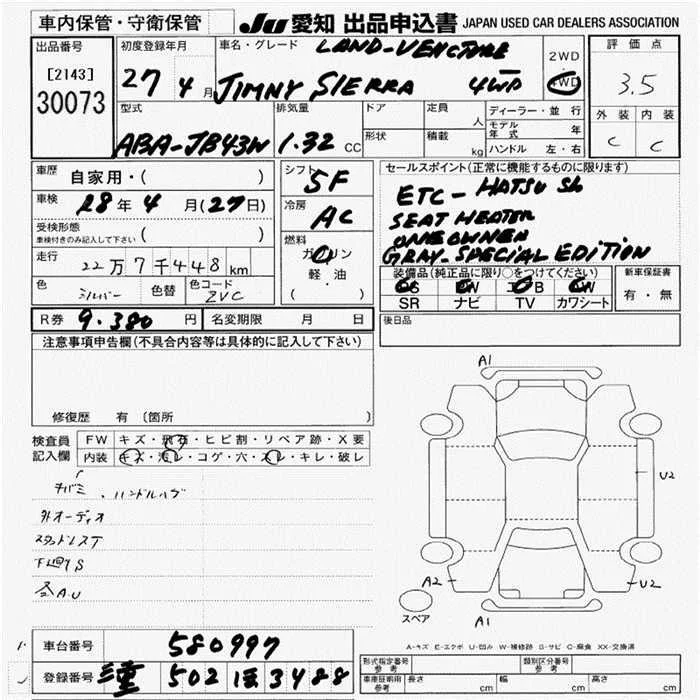 車内保管・守衛保管
JU 愛知 出品申込書 JAPAN USED CAR DEALERS ASSOCIATION
出品番号 初度登録年月 車名・グレード LAND-VENCTURE 2WD 評価点
[2143] 27 4月 JIMNY SIERRA 4WD 4WD 3.5
30073
型式 排気量 ドア 定員 人 ディーラー・並行 外装 内装
ABA-JB43W 1.32 CC 形状 積載 kg モデル年式 年 C C
ハンドル 左・右
車歴 自家用・( )
シフト 5F
セールスポイント(正常に機能するものに限ります)
車検 28年4月(27日)
冷房 AC
ETC - HATSU Sh
SEAT HEATER
受検形態 ( )
車検付きのみ記入して下さい
ONE OWNER
燃料 ガソリン
GRAY-SPECIAL EDITION
走行 22万7千448km
軽・油
( )
装備品(純正品に限り○をつけてください) 新車保証書
色 シルバー 色替 色コード ZVC
PS PW エアB AW 有・無
SR ナビ TV カワシート
R券 9.380円 名変期限 月 日
後日品
注意事項申告欄(不具合内容等は具体的に記入して下さい)
修復歴 有 〔箇所
検査員 FW キズ・飛石・ヒビ割・リペア跡・X要
記入欄 内装 キズ・汚レ・コゲ・穴・スレ・キレ・破レ
・ハンドルハゲ
外オーディオ
A1
U2
A2
U2
A1
スペア
A-キズ E-エクボ U-凹み W-補修跡 S-サビ C-腐食 XX-交換済
車台番号 580997
登録番号 三重 502 ほ 3488
形式指定番号 参考 類別区分番号 参考
車庫証明用 参考 長さ cm 幅 cm 高さ cm